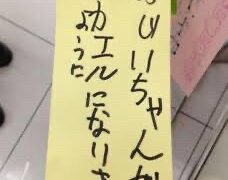 おじいちゃんが
カエルになりま
ように